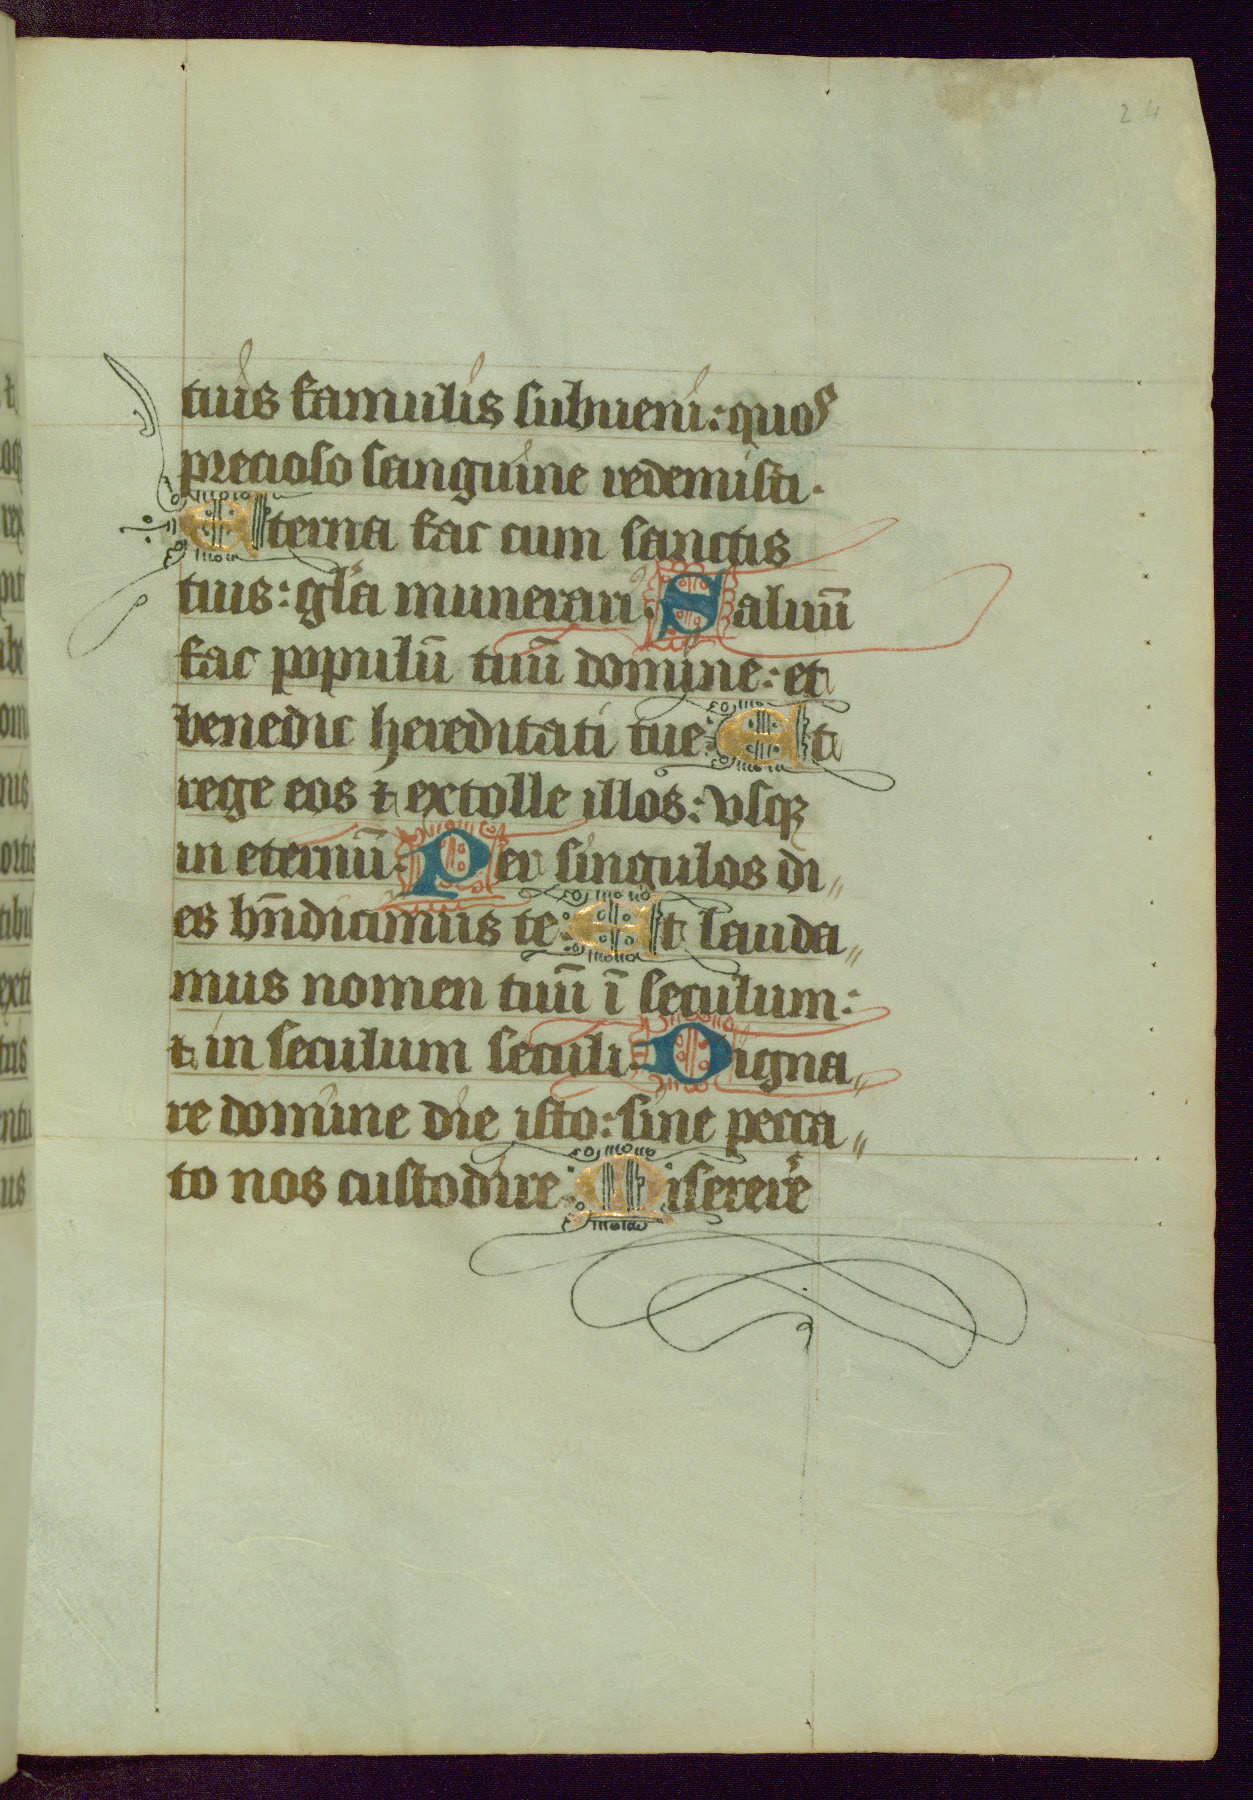 24
tuis famulis subueni: quos
precioso sanguine redemisti.
Eterna fac cum sanctis
tuis: gl̄a munerari. Saluū
fac populū tuū domine: et
benedic hereditati tue. Et
rege eos ⁊ extolle illos: vsqꝫ
in eternū. Per singulos di„
es bn̄dicimus te. Et lauda„
mus nomen tuū ī seculum:
⁊ in seculum seculi. Digna„
re domine die isto: sine pecca„
to nos custodire. Miserere